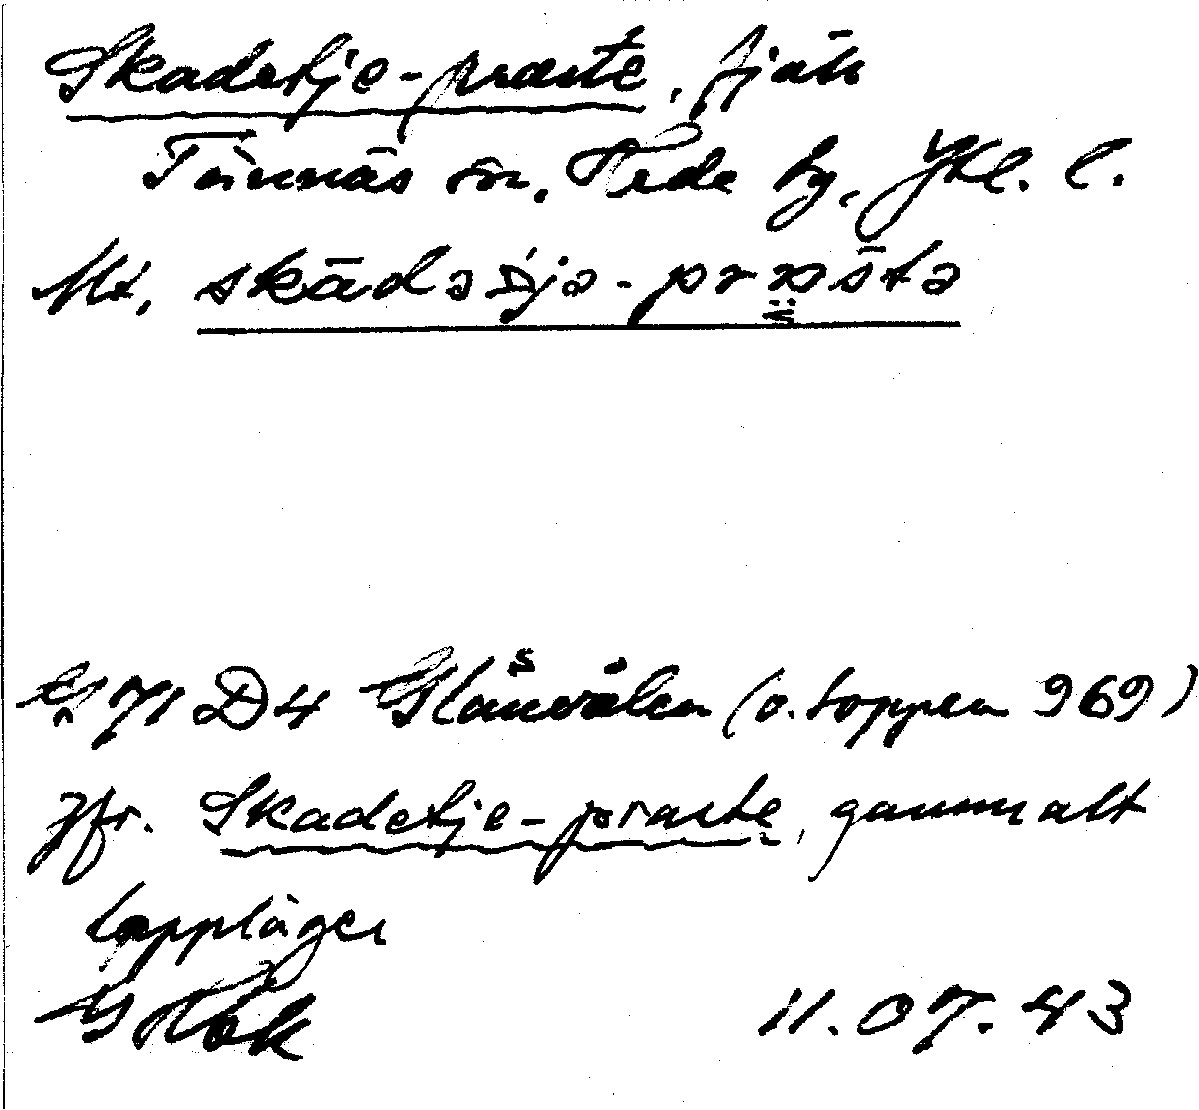 Skadetje-praste, fjäll
Tännäs sn. Hede tg. Jtl. l.
Ut. skādətjə-prastə
G 71 D4 Slånvålen (o. toppen 969)
Jfr. Skadetje-praste, gammalt
lappläger
11.07.43